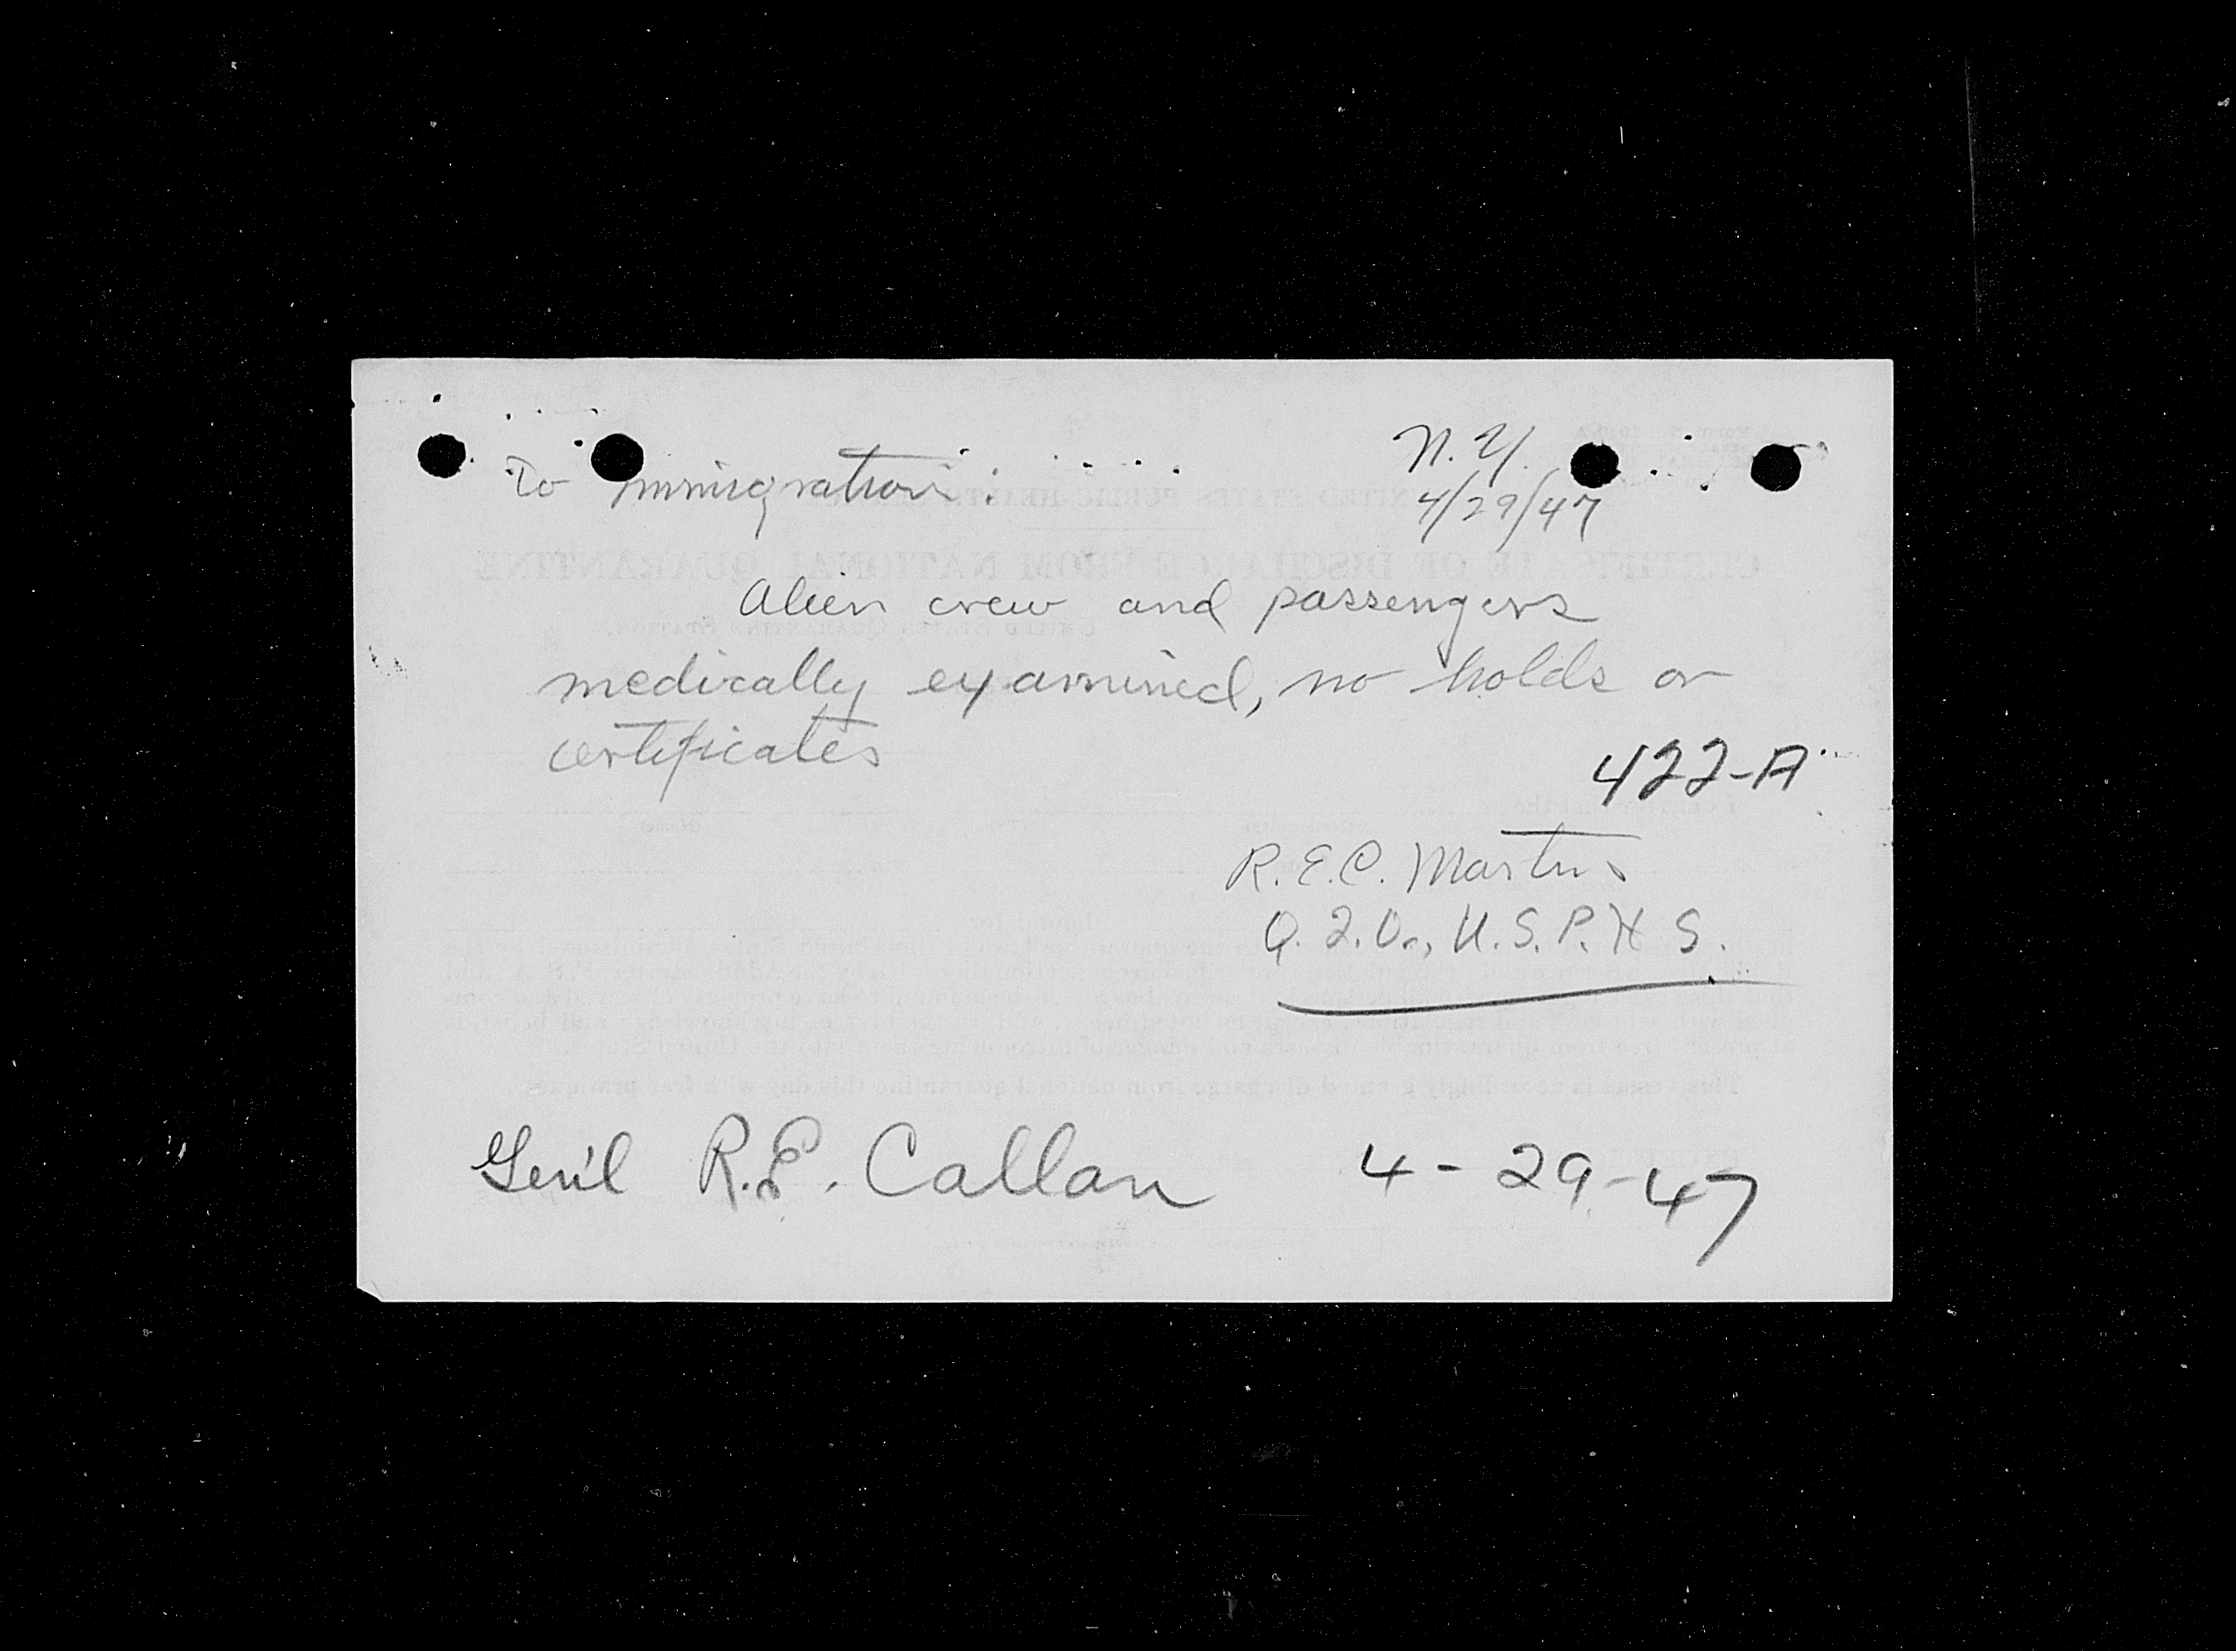 To Immigration: N.Y.
4/29/47
Alien crew and passengers
medically examined, no holds or
certificates
422-A
R.E.C. Martin
Q.I.O., U.S.P.H.S.
Gen'l R.E. Callan 4-29-47